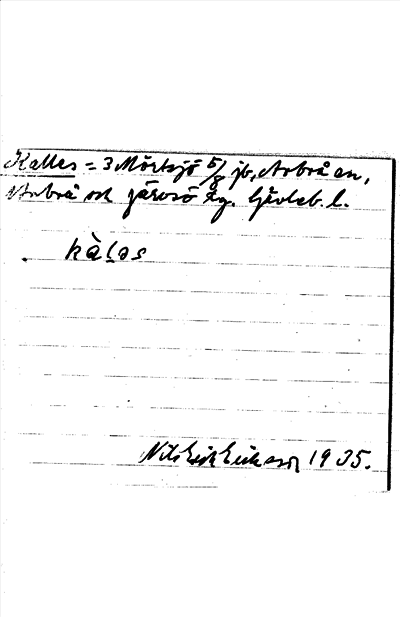 Kalles = 3 Mörtsjö 5/8 jb, Arbrå sn,
Arbrå och Järvsö tg. Gävleb. l.
kàlạs
Nils Erik Eriksson 1935.